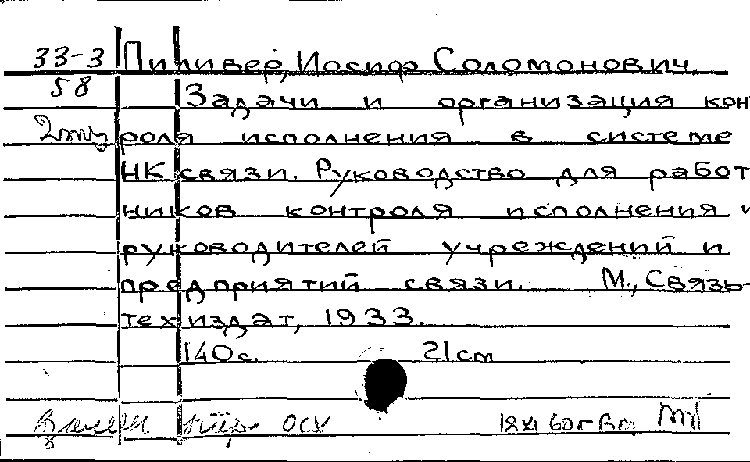 33-3 Пиливер, Иосиф Соломонович.
58
Задачи и организация кон
2 роля исполнения в системе
НК связи. Руководство для работ
ников контроля исполнения и
руководителей учреждений и
предприятий связи. М., Связь-
техиздат, 1933.
140с. 21см